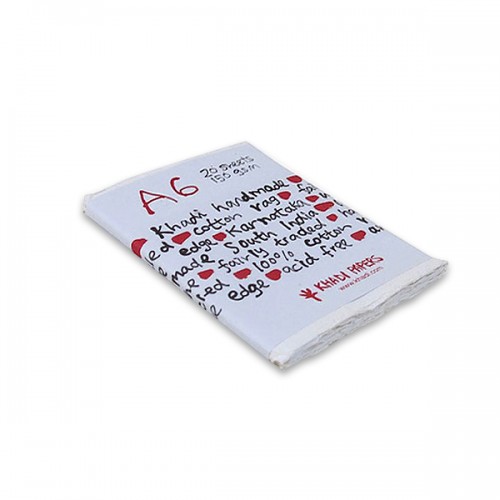 A6
20 sheets
150 gsm
Khadi handmade
ed cotton rag
edge Karnataka
made South India
fairly traded
red 100% cotton
edge acid free
KHADI PAPERS
www.khadi.com